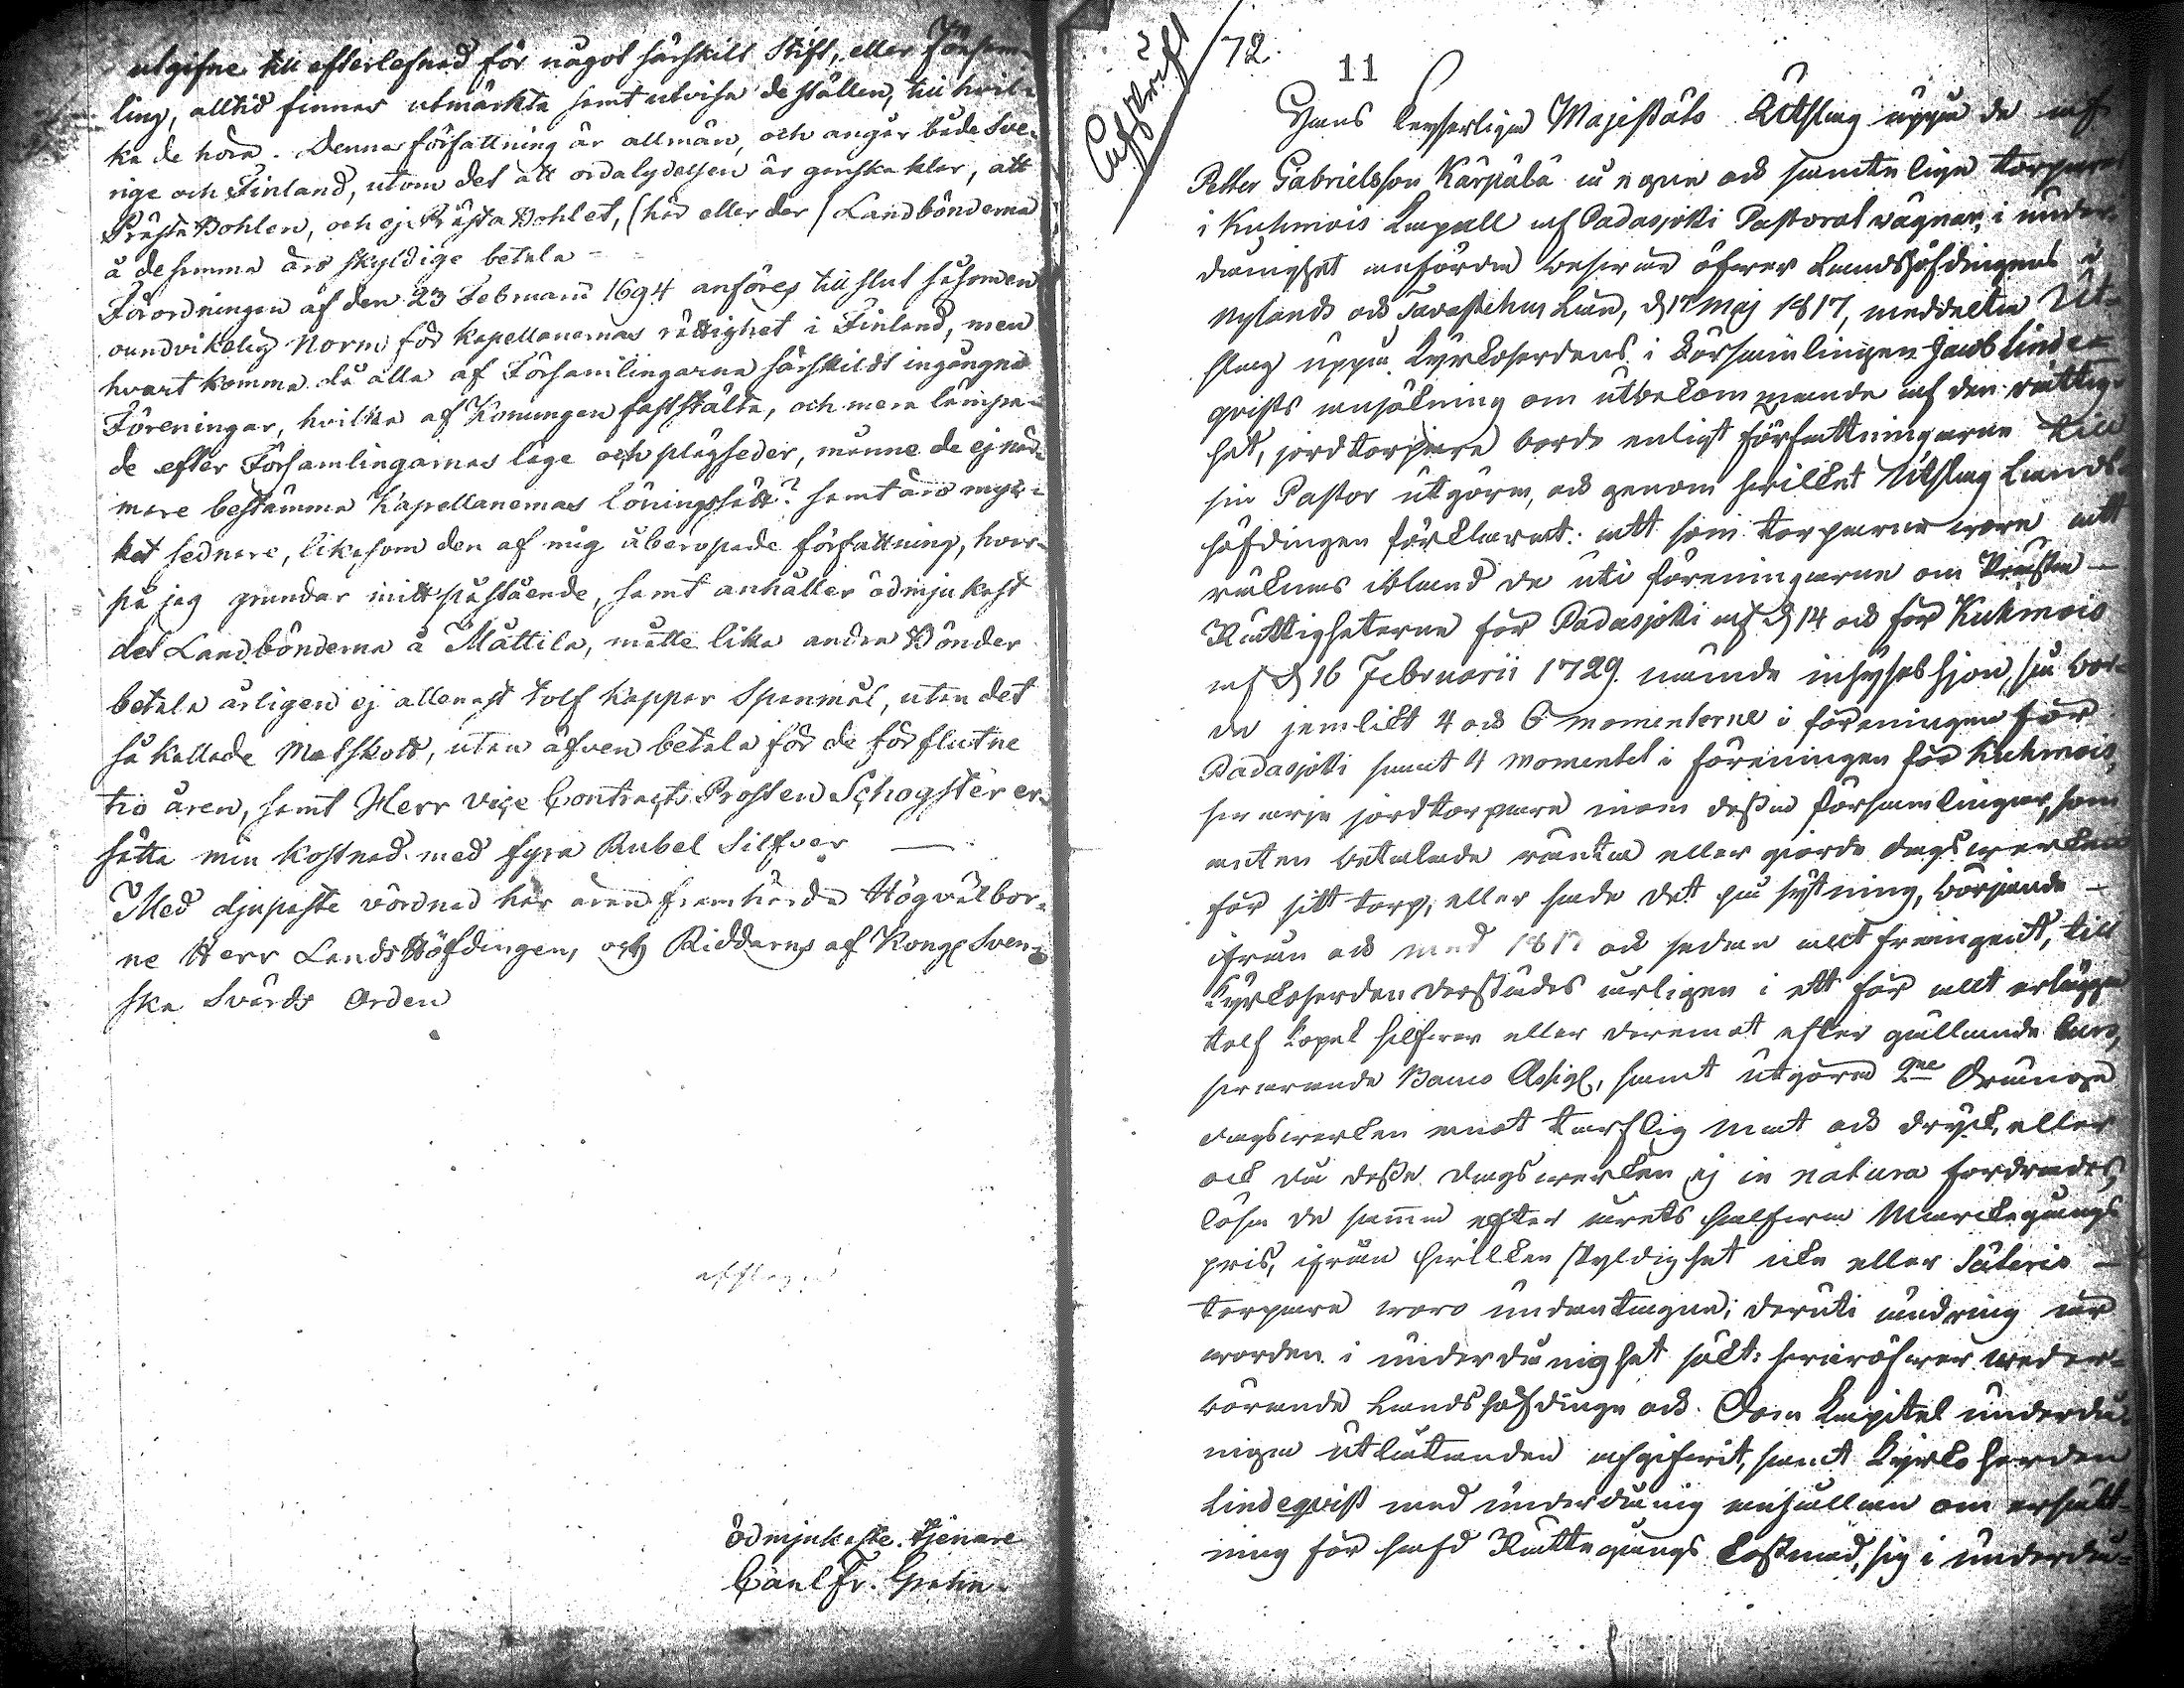 utgifne till efterlefnad för något särskilt Stift, eller Försam-
ling, alltid finnas utmärkta samt utvisa de ställen, till hvil-
ka de höra. Denna författning är allmän, och angår både Sve-
rige och Finland, utom det att ordalydelsen är ganska klar, att
Prästa Bohlen, och ej Prästa Bohlet, (här eller der) Landbönderna
å desamma äro skyldige betala –
Förordningen af den 23 Februarii 1694 anföres till slut såsom en
oundvikelig Norm för Kapellanernas rättighet i Finland, men
hvart komma då alla af Församlingarna särskildt ingångna
Föreningar, hvilka af Konungen fastställta, och mera lämpa-
de efter Församlingarnas läge och plägseder, månne de ej när-
mare bestämma Kapellanernas löningssätt? samt äro myc-
ket sednare, likasom den af mig åberopade författning, hvar-
på jag grundar mitt påstående, samt anhåller ödmjukast
det Landbönderna å Mattila, måtte lika andra Bönder
betala årligen ej allenast tolf kappar Spanmål, utan det
så kallade Matskott, utan äfven betala för de förflutne
tio åren, samt Herr Vice Contracts Prosten Schogster er-
sätta min Kostnad med fyra Rubel Silfver —
Med djupaste vördnad har äran framhärda Högvälbor-
ne Herr LandsHöfdingen, och Riddarens af Kongl Sven-
ska Svärds Orden
ödmjukaste tjenare
Carl Fr.
72.
11
Afskrift
Hans Keyserliga Majestäts Utslag uppå de af
Petter Gabrielsson Kärpälä å egna och samtelige torpares
i Kuhmois Capell af Padasjoki Pastorat vägnar, i under-
dånighet anförda besvär öfver Landshöfdingens i
Nylands och Tavastehus Län, d 17 Maj 1817, meddelta Ut-
slag uppå Kyrkoherdens i Församlingen Jacob Linde-
qvists ansökning om utbekommande af den rättig-
het, jordtorpare borde enligt författningarne till
sin Pastor utgöra, och genom hvilket Utslag Lands-
höfdingen förklarat: att som torparne vore att
räknas ibland de uti föreningarne om Prästa –
Rättigheterne för Padasjoki af d 14 och för Kuhmois
af d 16 Februarii 1729 nämnde inhyseshjon, så bor-
de jemlikt 4 och 6 momenterne i föreningen för
Padasjoki samt 4 momentet i föreningen för Kuhmois,
hvarje jordtorpare inom dessa församlingar, som
anten betalade ränta eller gjorde dagsverken
för sitt torp, eller hade det på sytning, börjande –
ifrån och med 1817 och sedan allt framgent, till
Kyrkoherden derstädes årligen i ett för allt erlägga
tolf kopek silfver eller deremot efter gällande curs,
svarande Banco Assign, samt utgöra 2ne Drängs
dagsverken emot tarflig mat och dryck, eller
ock då dessa dagsverken ej in natura fordrades,
lösa de samma efter årets halfva Markegångs
pris, ifrån hvilken skyldighet icke eller Säteri –
torpare voro undantagna; deruti ändring är
vorden i underdånighet sökt: hvaröfver veder-
börande Landshöfdinge och Dom Capitel underdå-
niga utlåtanden afgifvit, samt Kyrkoherden
Lindeqvist med underdånig anhållan om ersätt-
ning för hafd Rättegångs kostnad, sig i underdå-